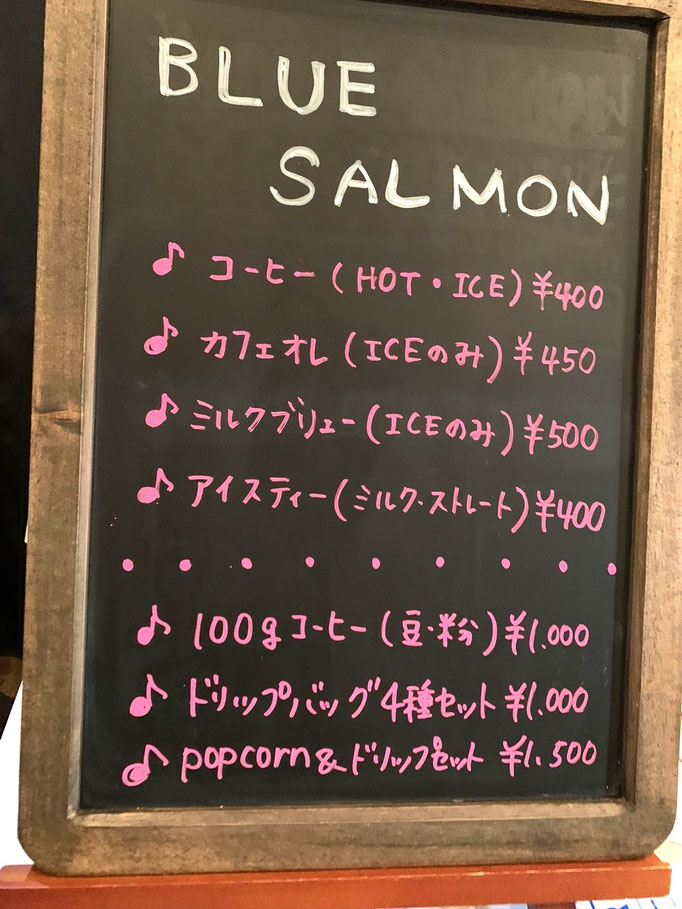 BLUE
SALMON
♪ コーヒー(HOT・ICE)¥400
♪ カフェオレ(ICEのみ)¥450
♪ ミルクブリュー(ICEのみ)¥500
♪ アイスティー(ミルク・ストレート)¥400
・・・・・・・・・
♪ 100gコーヒー(豆・粉)¥1.000
♪ ドリップバッグ4種セット ¥1.000
♪ popcorn&ドリップセット ¥1.500